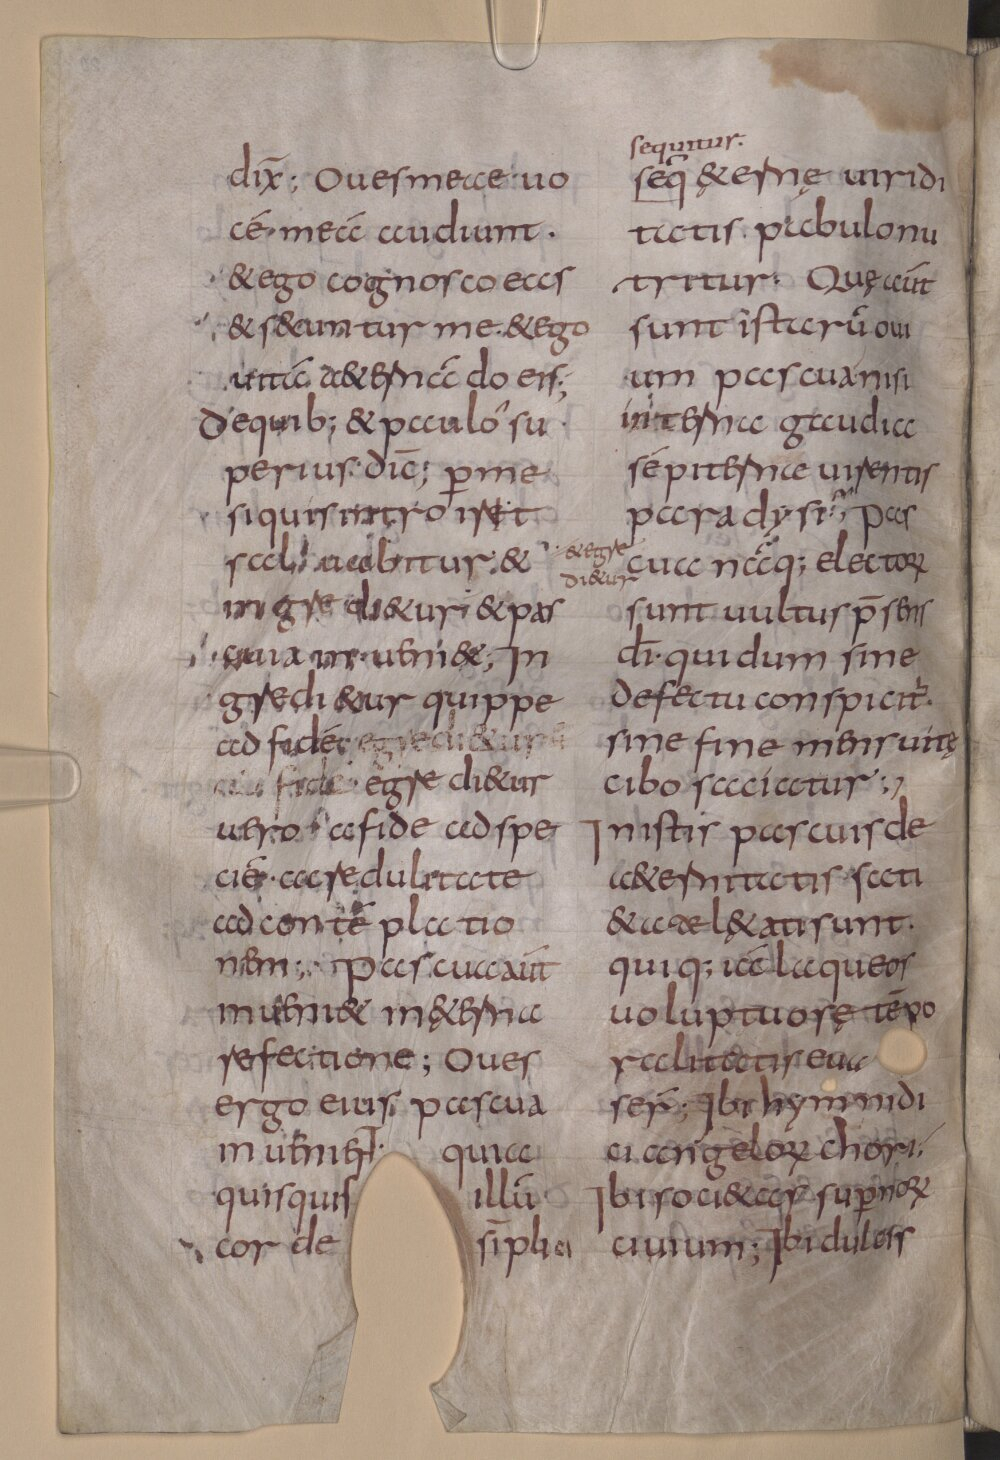 dix̄; Oues meae uo
cē meā audiunt.
& ego cognosco eas
& s&untur me. & ego
uitā a&ernā do eis;
De quib; & paulo su
perius dic̄; per me
si quis intro ier̄et
sal uabitur. &
in gre di&ur; & pas
cua inueni&; In
gredi &ur quippe
ad fidē; egredi&ur
egre di&ur
uero a fide ad spe
ciē. a credulitate
ad contē platio
nem; Pascua aūt
inueni& in &erna
refectione; Oues
ergo eius pascua
inueniet. quia
quisquis illū
corde sīplici
sequitur.
seq̄ &ernę uiridi
tatis. pabulo nu
tritur. Quę aūt
sunt istarū oui
um pascua nisi
interna gaudia
sēper uirentis
paradysi; Pas
& egre
di&ur
cua nāq; electoꝝ
sunt uultus p̄sens
dī. qui dum sine
defectu conspicit̄.
sine fine mens uitę
cibo saciatur;
In istis pascuis de
a&ernitatis sati
&ate l&ati sunt.
qui q; iā laqueos
uoluptuosę tēpo
ralitatis eua
ser̄; Ibi hymnidi
ci angeloꝝ chori.
Ibi soci&as supernoꝝ
ciuium; Ibi dulcis